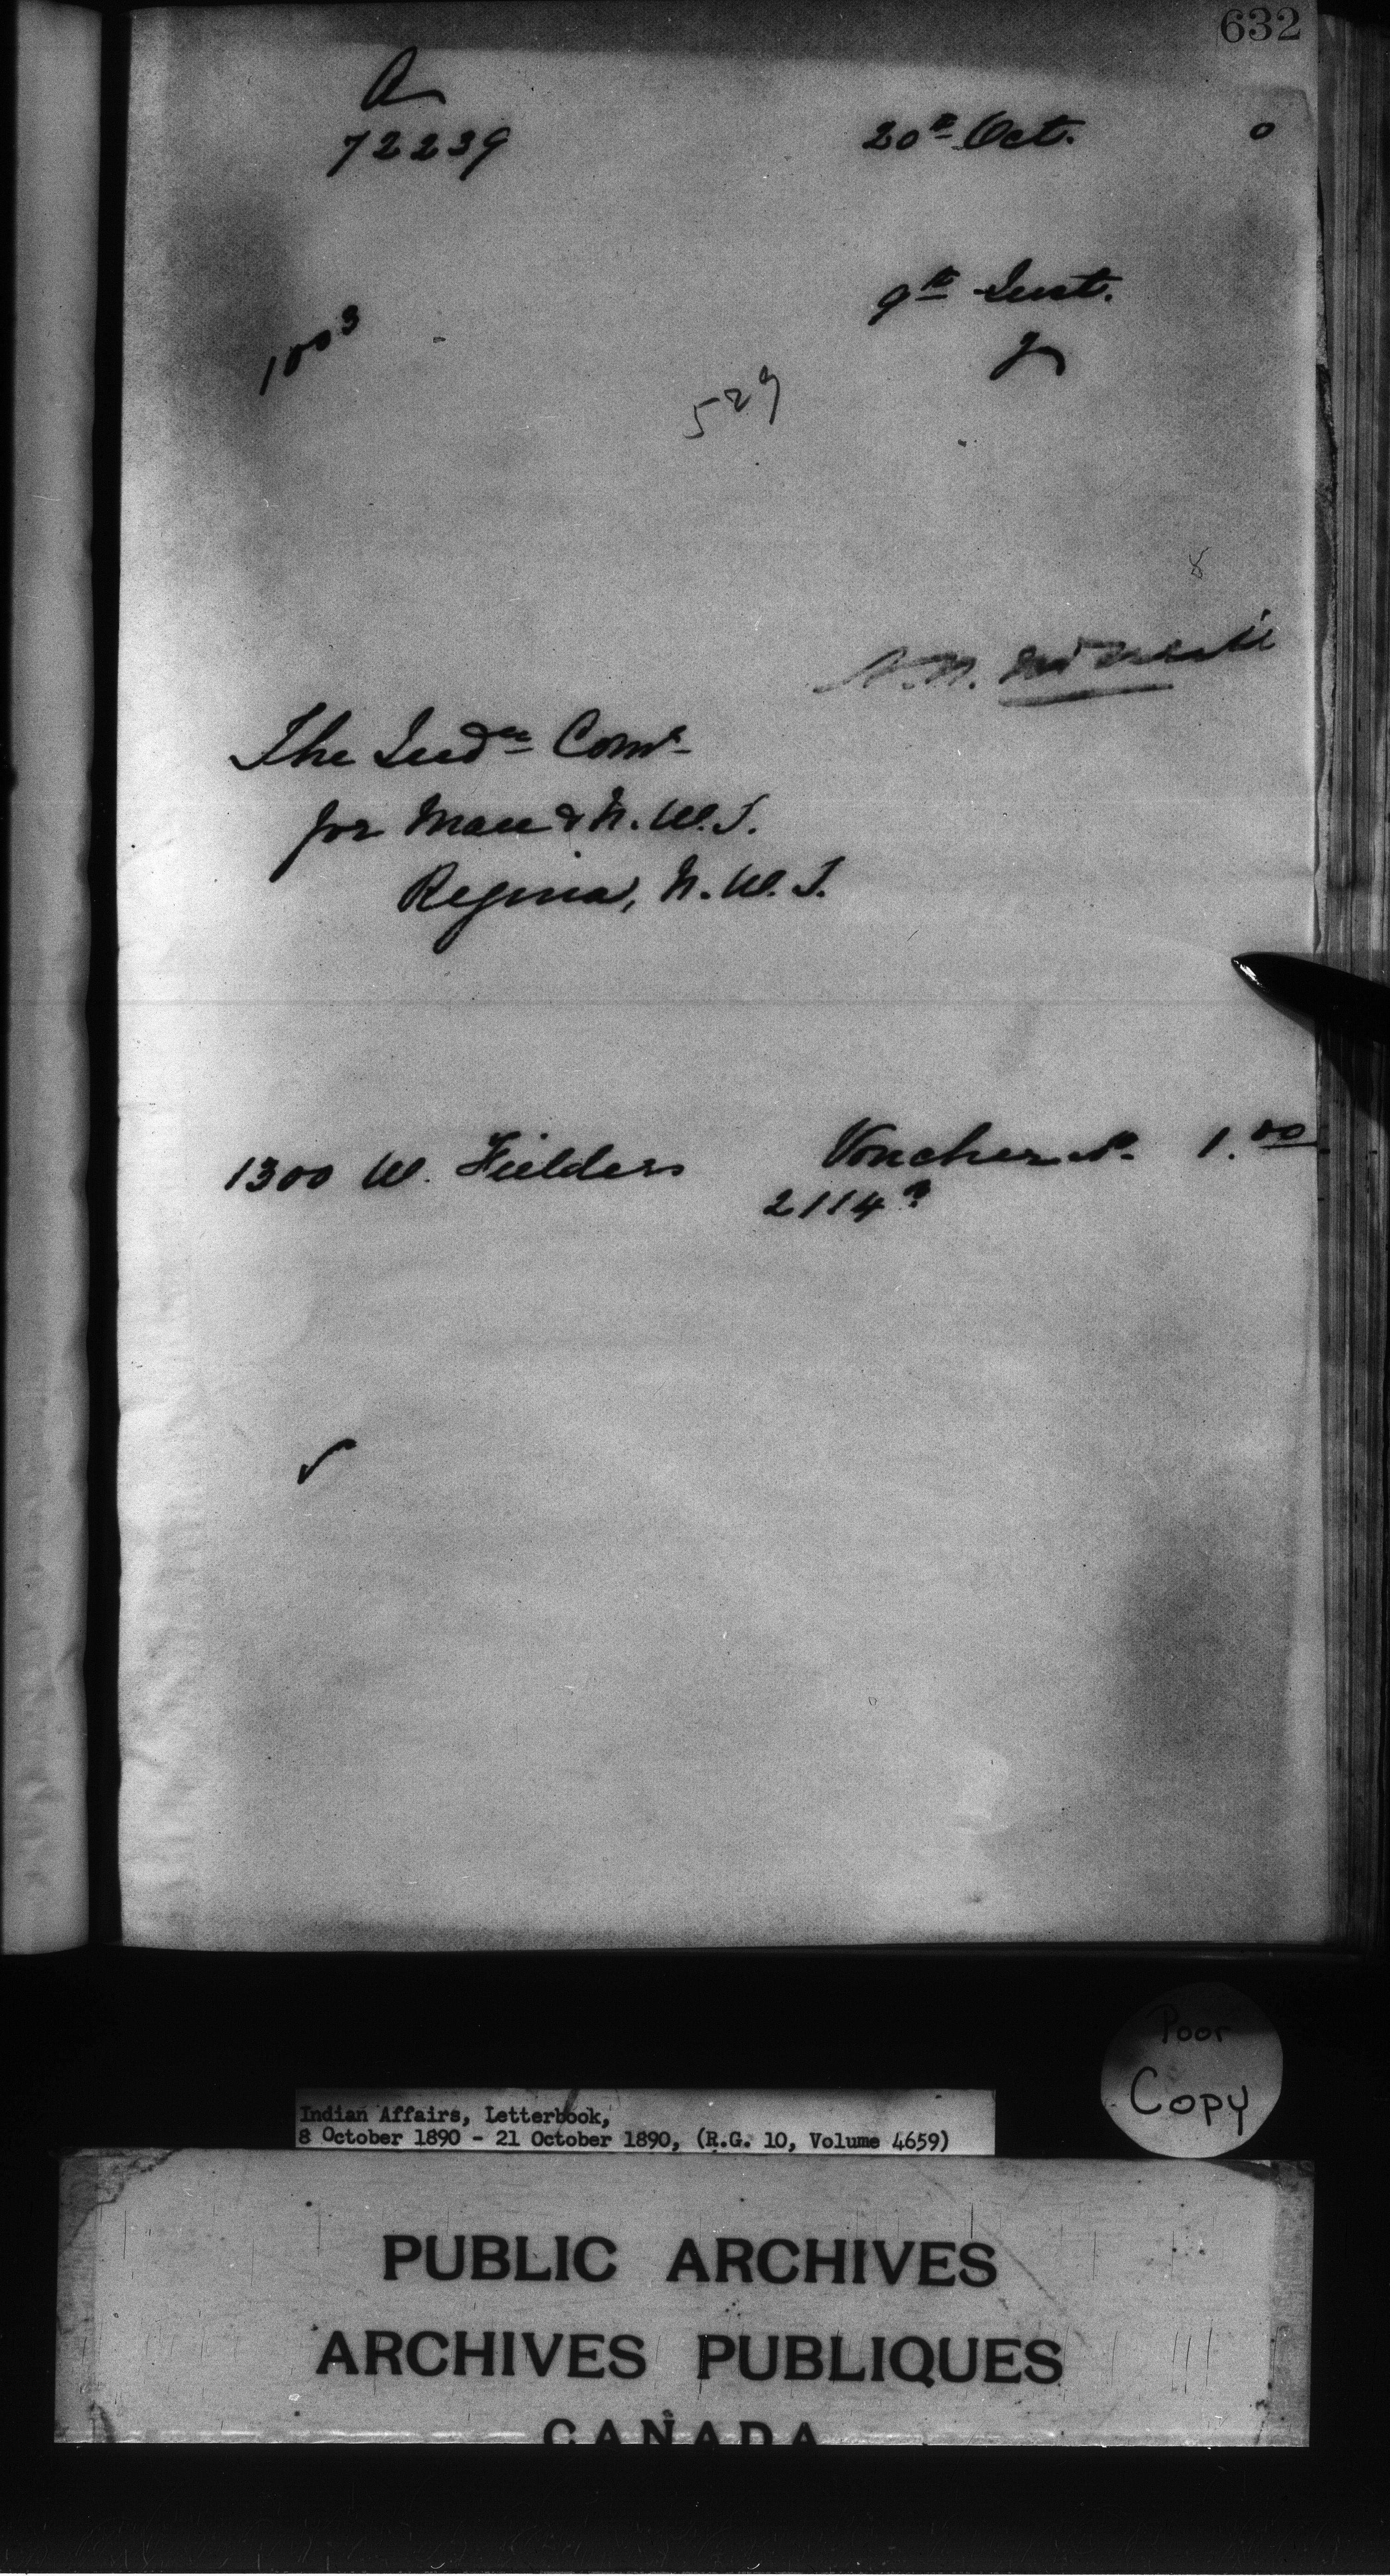 632
A
72239 20th Oct. 0
9th Inst.
1003
529
The Indn Comr
for Man & N.W.T.
Regina, N.W.T.
1300 W. Fielders Voucher 1.00
2114
Poor
Copy
Indian Affairs, Letterbook,
8 October 1890 - 21 October 1890, (R.G. 10, Volume 4659)
PUBLIC ARCHIVES
ARCHIVES PUBLIQUES
CANADA